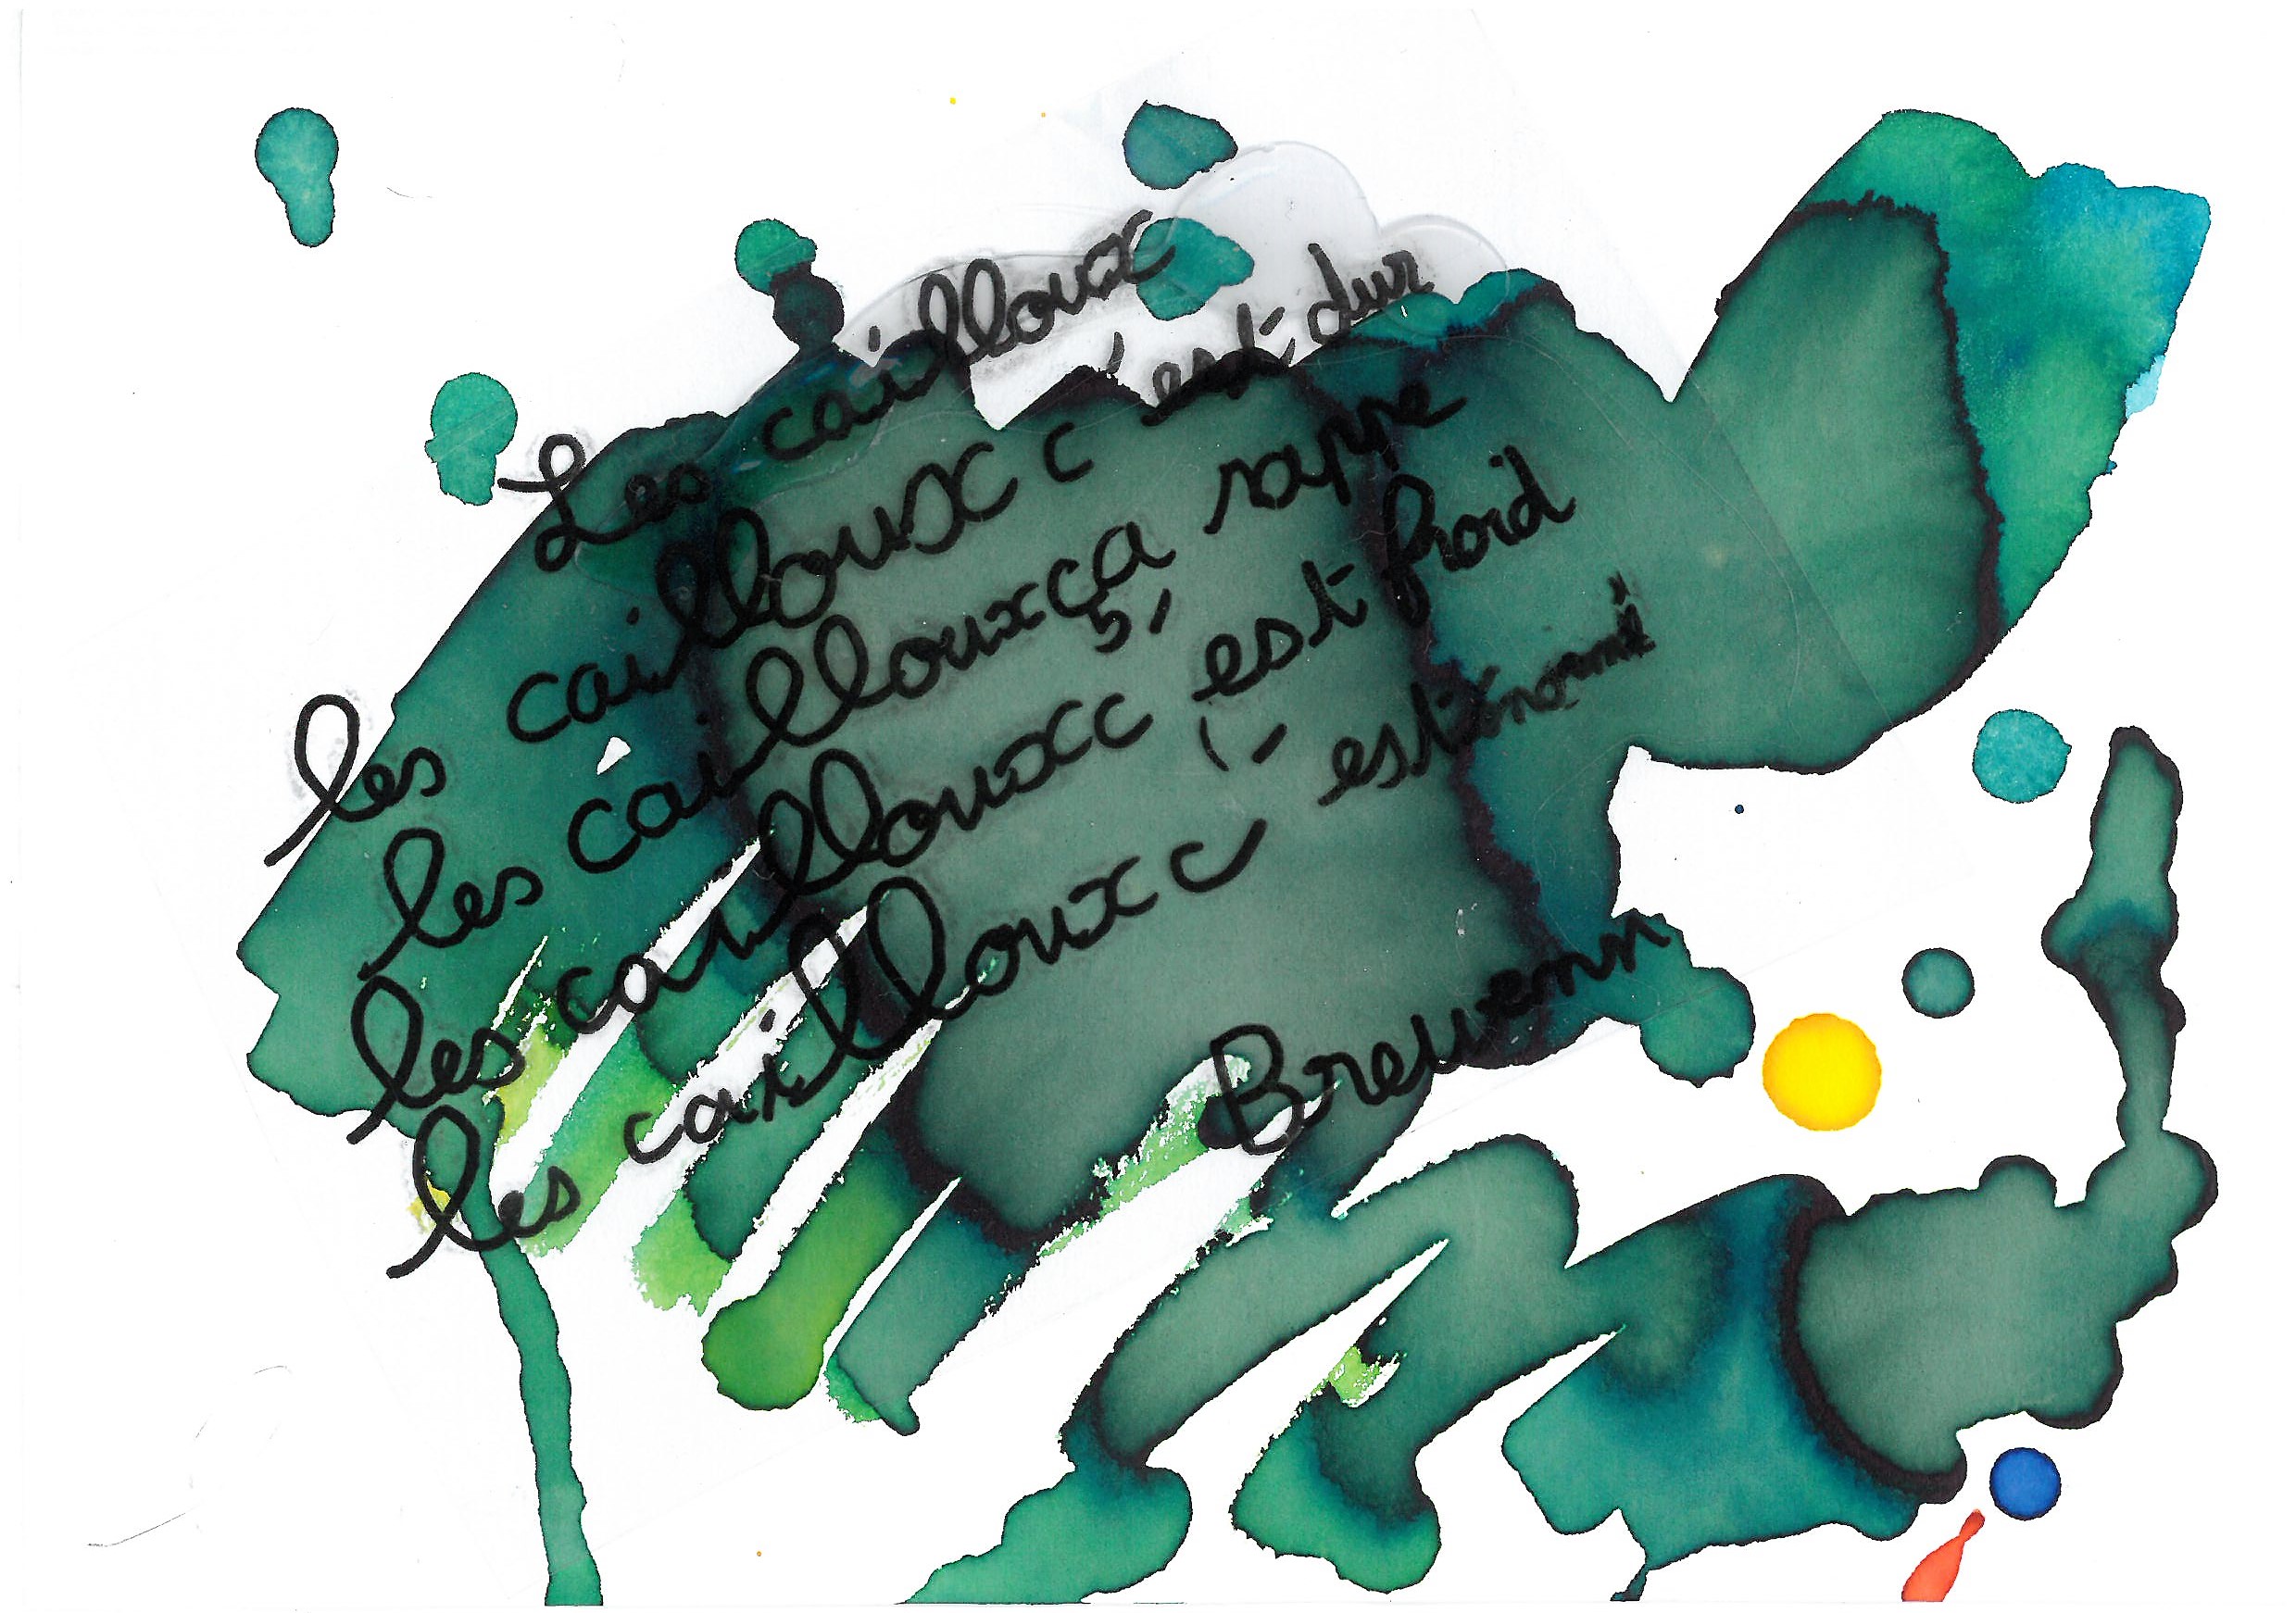 Les cailloux
les cailloux c'est dur
les cailloux ça rape
les cailloux c'est froid
les cailloux c'est énorme
Brewenn